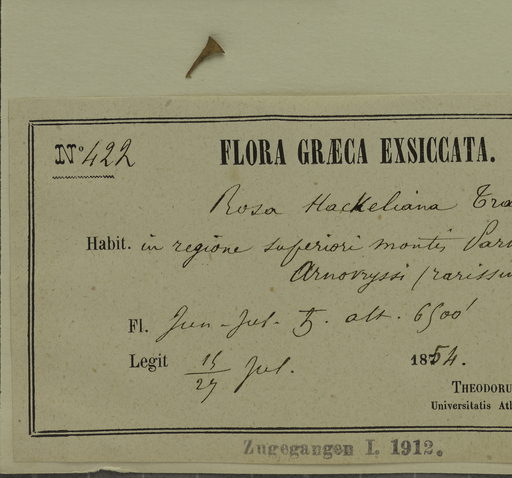 Nº 422
FLORA GRÆCA EXSICCATA.
Rosa Hackeliana Tra
Habit. in regione superiori montis Parn
Arnovryssi (rarissi
Fl. Jun - Jul. ♄. alt. 6500'
Legit 15/27 Jul. 1854.
THEODORU
Universitatis At
Zugegangen I. 1912.